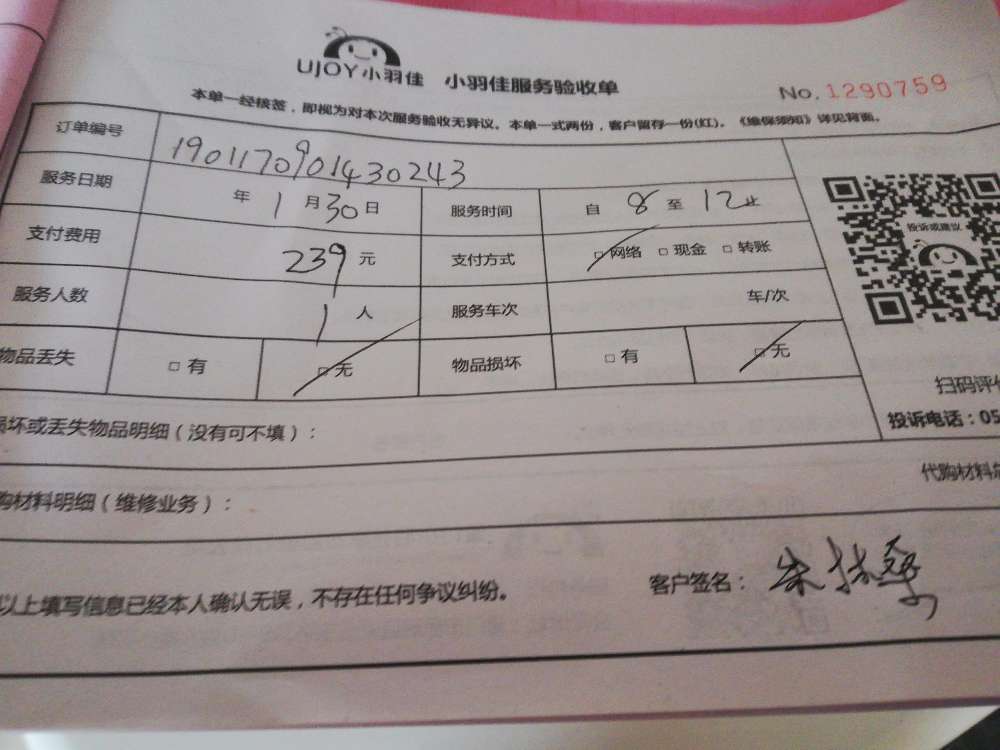 UJOY小羽佳 小羽佳服务验收单
No. 1290759
本单一经核签，即视为对本次服务验收无异议。本单一式两份，客户留存一份(红)。《维保须知》详见背面。
订单编号 1901170901430243
服务日期 年 1 月 30 日 服务时间 自 8 至 12 止
支付费用 239 元 支付方式 □网络 □现金 □转账
服务人数 1 人 服务车次 车/次
物品丢失 □有 □无 物品损坏 □有 □无
投诉或建议
扫码评价
投诉电话：05
损坏或丢失物品明细（没有可不填）：
代购材料总
购材料明细（维修业务）：
以上填写信息已经本人确认无误，不存在任何争议纠纷。
客户签名：朱